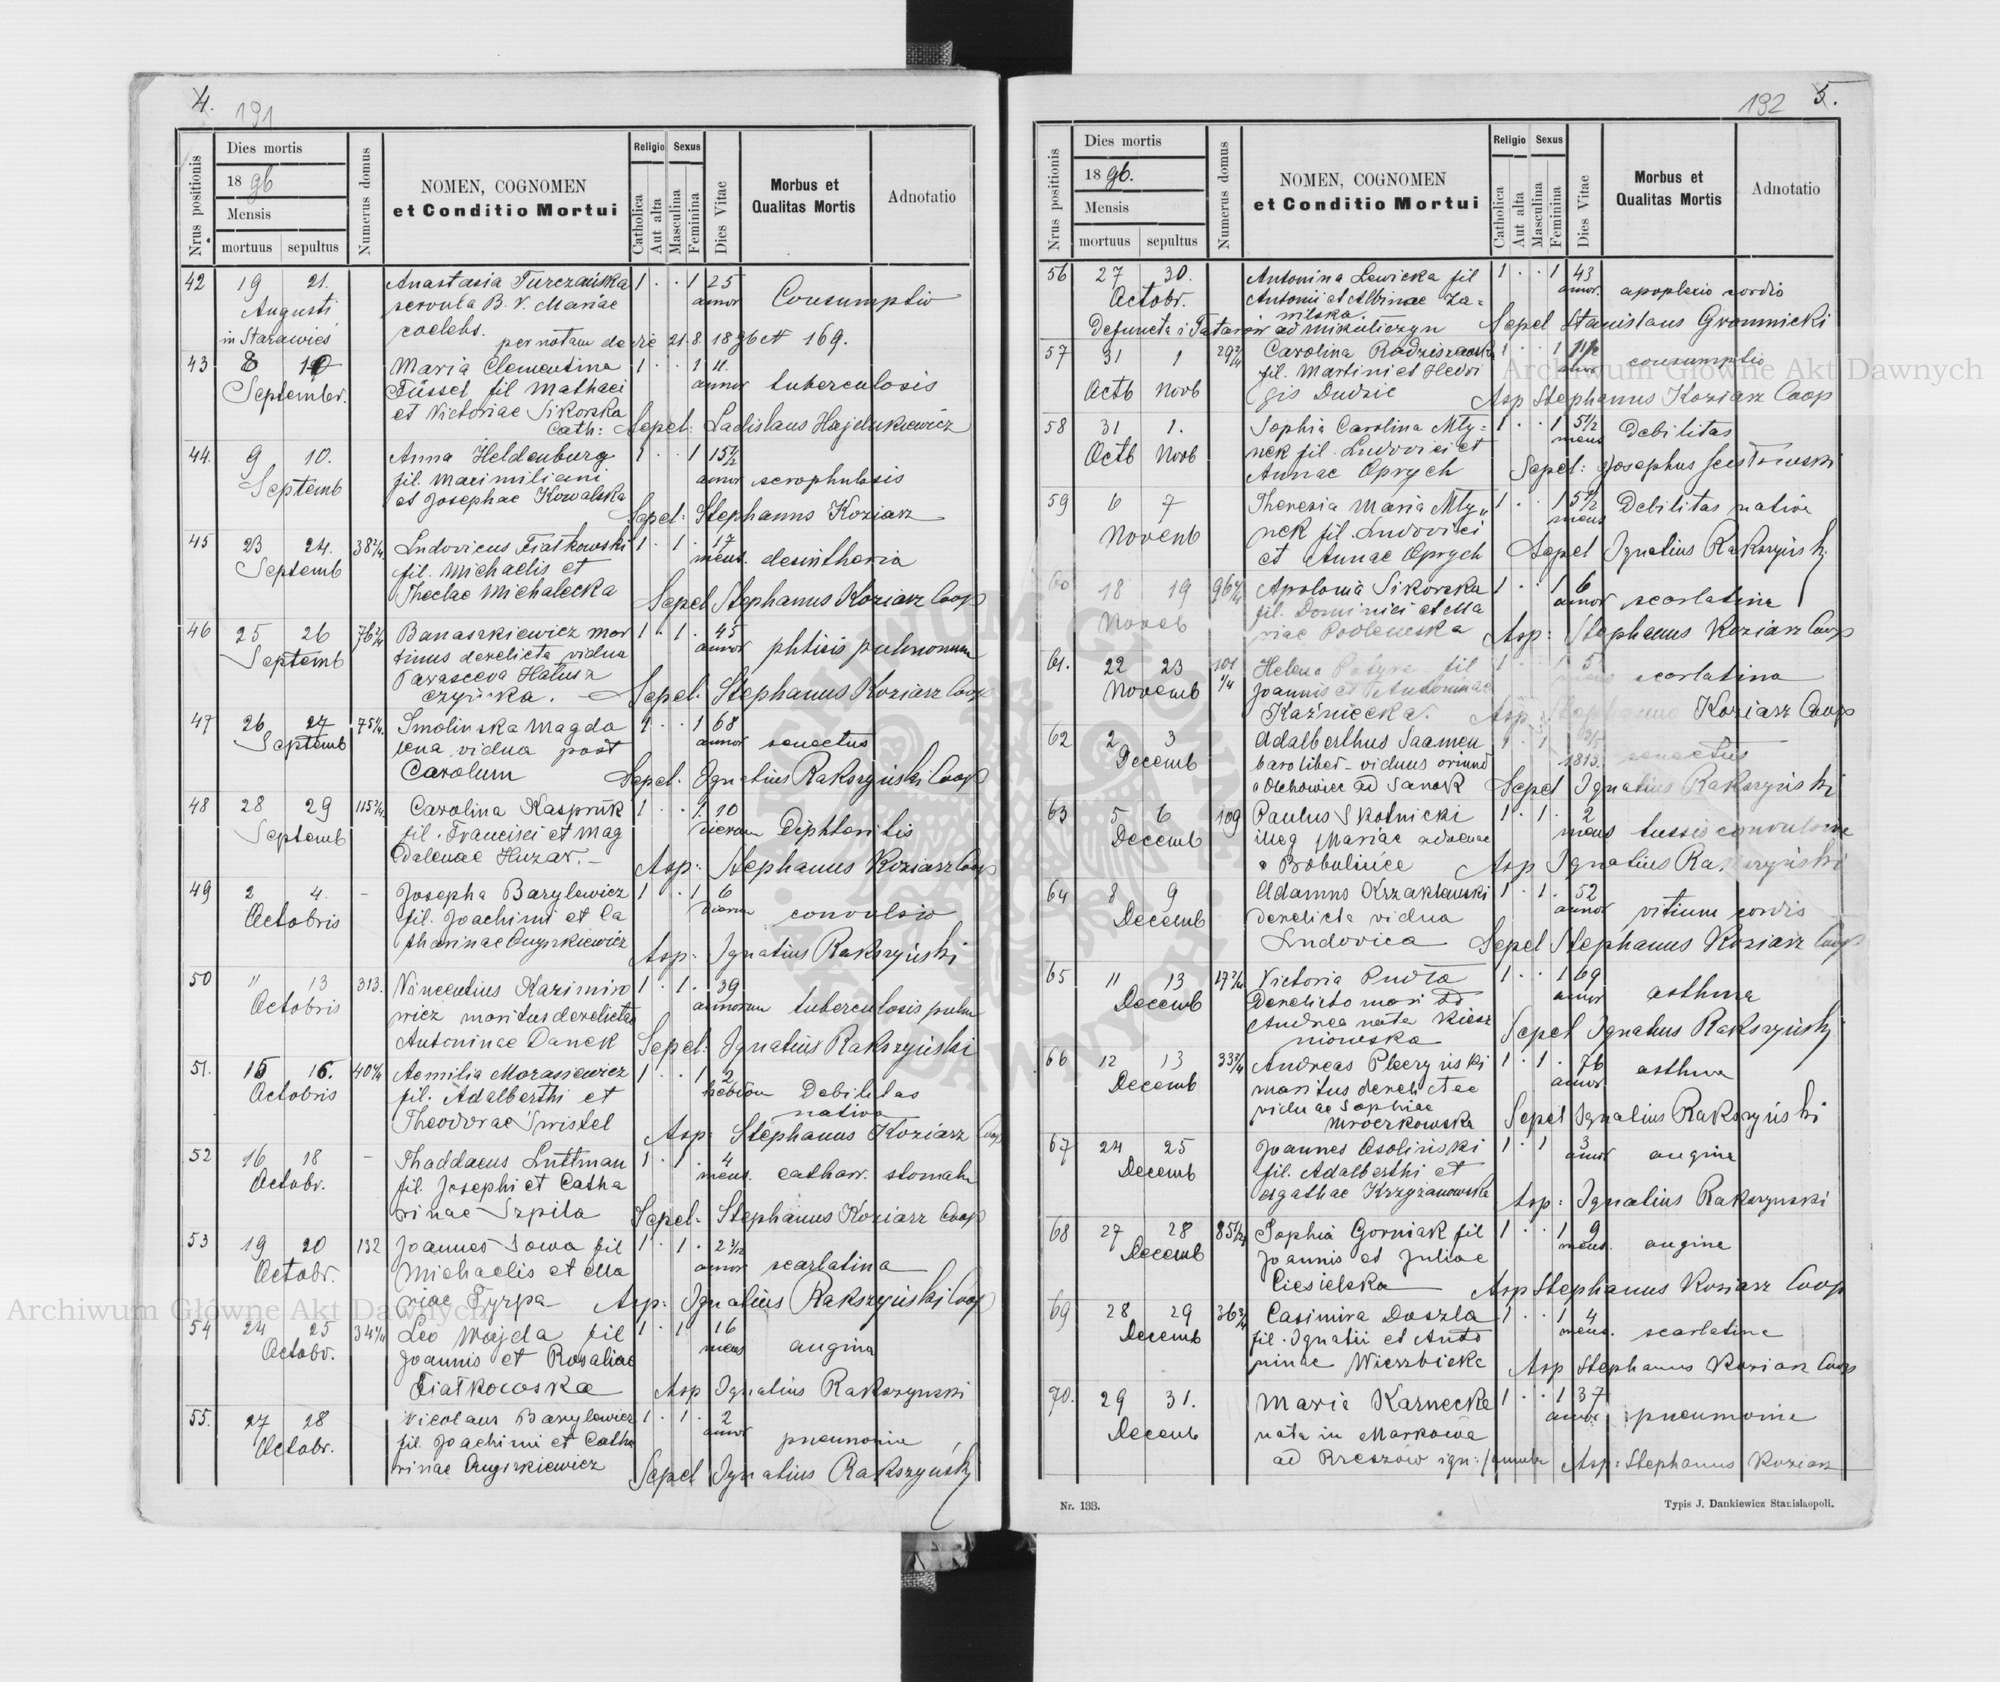 4.
191
Nrus positionis
Dies mortis
1896
Mensis
mortuus
sepultus
Numerus domus
NOMEN, COGNOMEN
et Conditio Mortui
Religio
Sexus
Catholica
Aut alta
Masculina
Feminina
Dies Vitae
Morbus et
Qualitas Mortis
Adnotatio
42 19 21. Anastasia Turczańska 1 . . 1 25
Augusti servula B. V. Mariae annor Consumptio
in Starawieś coelebs.
per notam de 21.8 1896 N 169.
43 8 10 Maria Clementina 1 . . 1 11.
Septembr. Füssel fil Mathaei annor tuberculosis
et Victoriae Sikorska
Cath: Sepel: Ladislaus Hajdukiewicz
44. 9 10. Anna Heldenburg 1 . . 1 15 1/2
Septemb fil. Maximiliani annor scrophulosis
et Josephae Kowalska
Sepel: Stephanus Koziarz
45 23 24. 38 2/4 Ludovicus Fiałkowski 1 . 1 . 17
Septemb fil. Michaelis et mens. desintheria
Theclae Michalecka
Sepel Stephanus Koziarz Coop
46 25 26 76 2/4 Banaszkiewicz mar 1 . 1 . 45
Septemb tinus derelicta vidua annor phtisis pulmonum
Parasceva Halusz
czyńska. Sepel. Stephanus Koziarz Coop
47 26 27 75 1/4 Smolinska Magda 1 . . 1 68
Septemb lena vidua post annor senectus
Carolum Sepel. Ignatius Rakszyński Coop
48 28 29 115 2/4 Carolina Kaspruk 1 . . 1. 10
Septemb fil. Francisci et Mag dierum Diphteritis
dalenae Huzar.
Asp: Stephanus Koziarz Coop
49 2 4. - Josepha Barylewicz 1 . . 1 6
Octobris fil. Joachimi et Ca dierum convulsio
tharinae
Asp: Ignatius Rakszyński
50 11 13 313. Vincentius Kazimiro 1 . 1 . 39
Octobris wicz maritus derelictae annorum tuberculosis pulm
Antoninae Danek
Sepel: Ignatius Rakszyński
51. 15 16. 40 4/4 Aemilia Morasiewicz 1 . . 1 2
Octobris fil. Adalberthi et hebdom Debilitas
nativa
Theodorae Swistel
Asp: Stephanus Koziarz Coop
52 16 18 - Thaddaeus Luttman 1 . 1 . 4
Octobr. fil. Josephi et Catha mens. cathar. stomach
rinae Szpila Sepel. Stephanus Koziarz Coop
53 19 20 132 Joannes Sowa fil 1 . 1 . 2 3/12
Octobr. Michaelis et Ma annor scarlatina
riae Tyrpa Asp: Ignatius Rakszyński Coop
54 24 25 34 4/4 Leo Wojda fil 1 . 1 16
Octobr. Joannis et Rosaliae mens angina
Fiałkowska Asp Ignatius Rakszynski
55. 27 28 Nicolaus Barylewicz 1 . 1 . 2
Octobr. fil. Joachimi et Catha annor pneumonia
rinae
Sepel Ignatius Rakszyński
192
5.
Nrus positionis
Dies mortis
1896.
Mensis
mortuus
sepultus
Numerus domus
NOMEN, COGNOMEN
et Conditio Mortui
Religio
Sexus
Catholica
Aut alta
Masculina
Feminina
Dies Vitae
Morbus et
Qualitas Mortis
Adnotatio
56 27 30. Antonina Lewicka fil 1 . . 1 43
Octobr. Antonii et Albinae Za= annor. apoplexio cordis
wilska.
Defuncta i Tatarów ad Mikuliczyn Sepel Stanislaus Gromnicki
57 31 1 29 2/4 Carolina Radziszewska 1 . . 1
Octb Novb fil. Martini et Hedvi consumptio
gis Dudzic Asp Stephanus Koziarz Coop
58 31 1. Sophia Carolina Mły= 1 . . 1 5 1/2
Octb Novb nek fil. Ludovici et mens Debilitas
Annae Oprych Sepel: Josephus
59 6 7 Theresia Maria Mły= 1 . . 1 5 1/2
Novemb nek fil. Ludovici mens Debilitas nativa
et Annae Oprych Sepel Ignatius Rakszyński
60 18 19 96 Apolonia Sikorska 1 . . 1 6
Noveb fil. Dominici et Ma annor scarlatina
riae Podlewska Asp: Stephanus Koziarz Coop
61. 22 23 101 1/4 Helena fil 1 . . 1 5
Novemb Joannis et Antoninae scarlatina
Kaźniecka. Asp: Stephanus Koziarz Coop
62 2 3 Adalberthus Saamen 1 . 1
Decemb viduus oriund 1815. senectus
ad Sanok Sepel Ignatius Rakszyński
63 5 6 109 Paulus Skotnicki 1 . 1 . 2
Decemb illeg Mariae advenae mens tussis convulsiva
a Bobulińce Asp Ignatius Rakszyński
64 8 9 Adamus Krzaklewski 1 . 1 . 52
Decemb derelicta vidua annor vitium cordis
Ludovica Sepel Stephanus Koziarz Coop
65 11 13 17 2/4 Victoria Pudło 1 . . 1 69
Decemb Derelicto marito annor asthma
Andrea nata Kiesz
niowska Sepel Ignatius Rakszyński
66 12 13 33 3/4 Andreas Pleczyński 1 . 1 . 76
Decemb maritus derelictae annor asthma
viduae Sophiae
Mroczkowska Sepel Ignatius Rakszyński
67 24 25 Joannes Osoliński 1 . 1 3
Decemb fil. Adalberthi et annor angina
Agathae Krzyżanowska Asp: Ignatius Rakszynski
68 27 28 85 Sophia Gorniak fil 1 . . 1 9
Decemb Joannis et Juliae mens. angina
Ciesielska Asp Stephanus Koziarz Coop
69 28 29 36 3/4 Casimira Doszla 1 . . 1 4
Decemb fil. Ignatii et Anto mens. scarlatina
ninae Wierzbicka Asp Stephanus Koziarz Coop
70. 29 31. Maria Karnecka 1 . . 1 37
Decemb nata in Markowa annor pneumonia
ad Rzeszów ign: famula Asp: Stephanus Koziarz
Nr. 133.
Typis J. Dankiewicz Stanislaopoli.
Archiwum Główne Akt Dawnych
Archiwum Główne Akt Dawnych